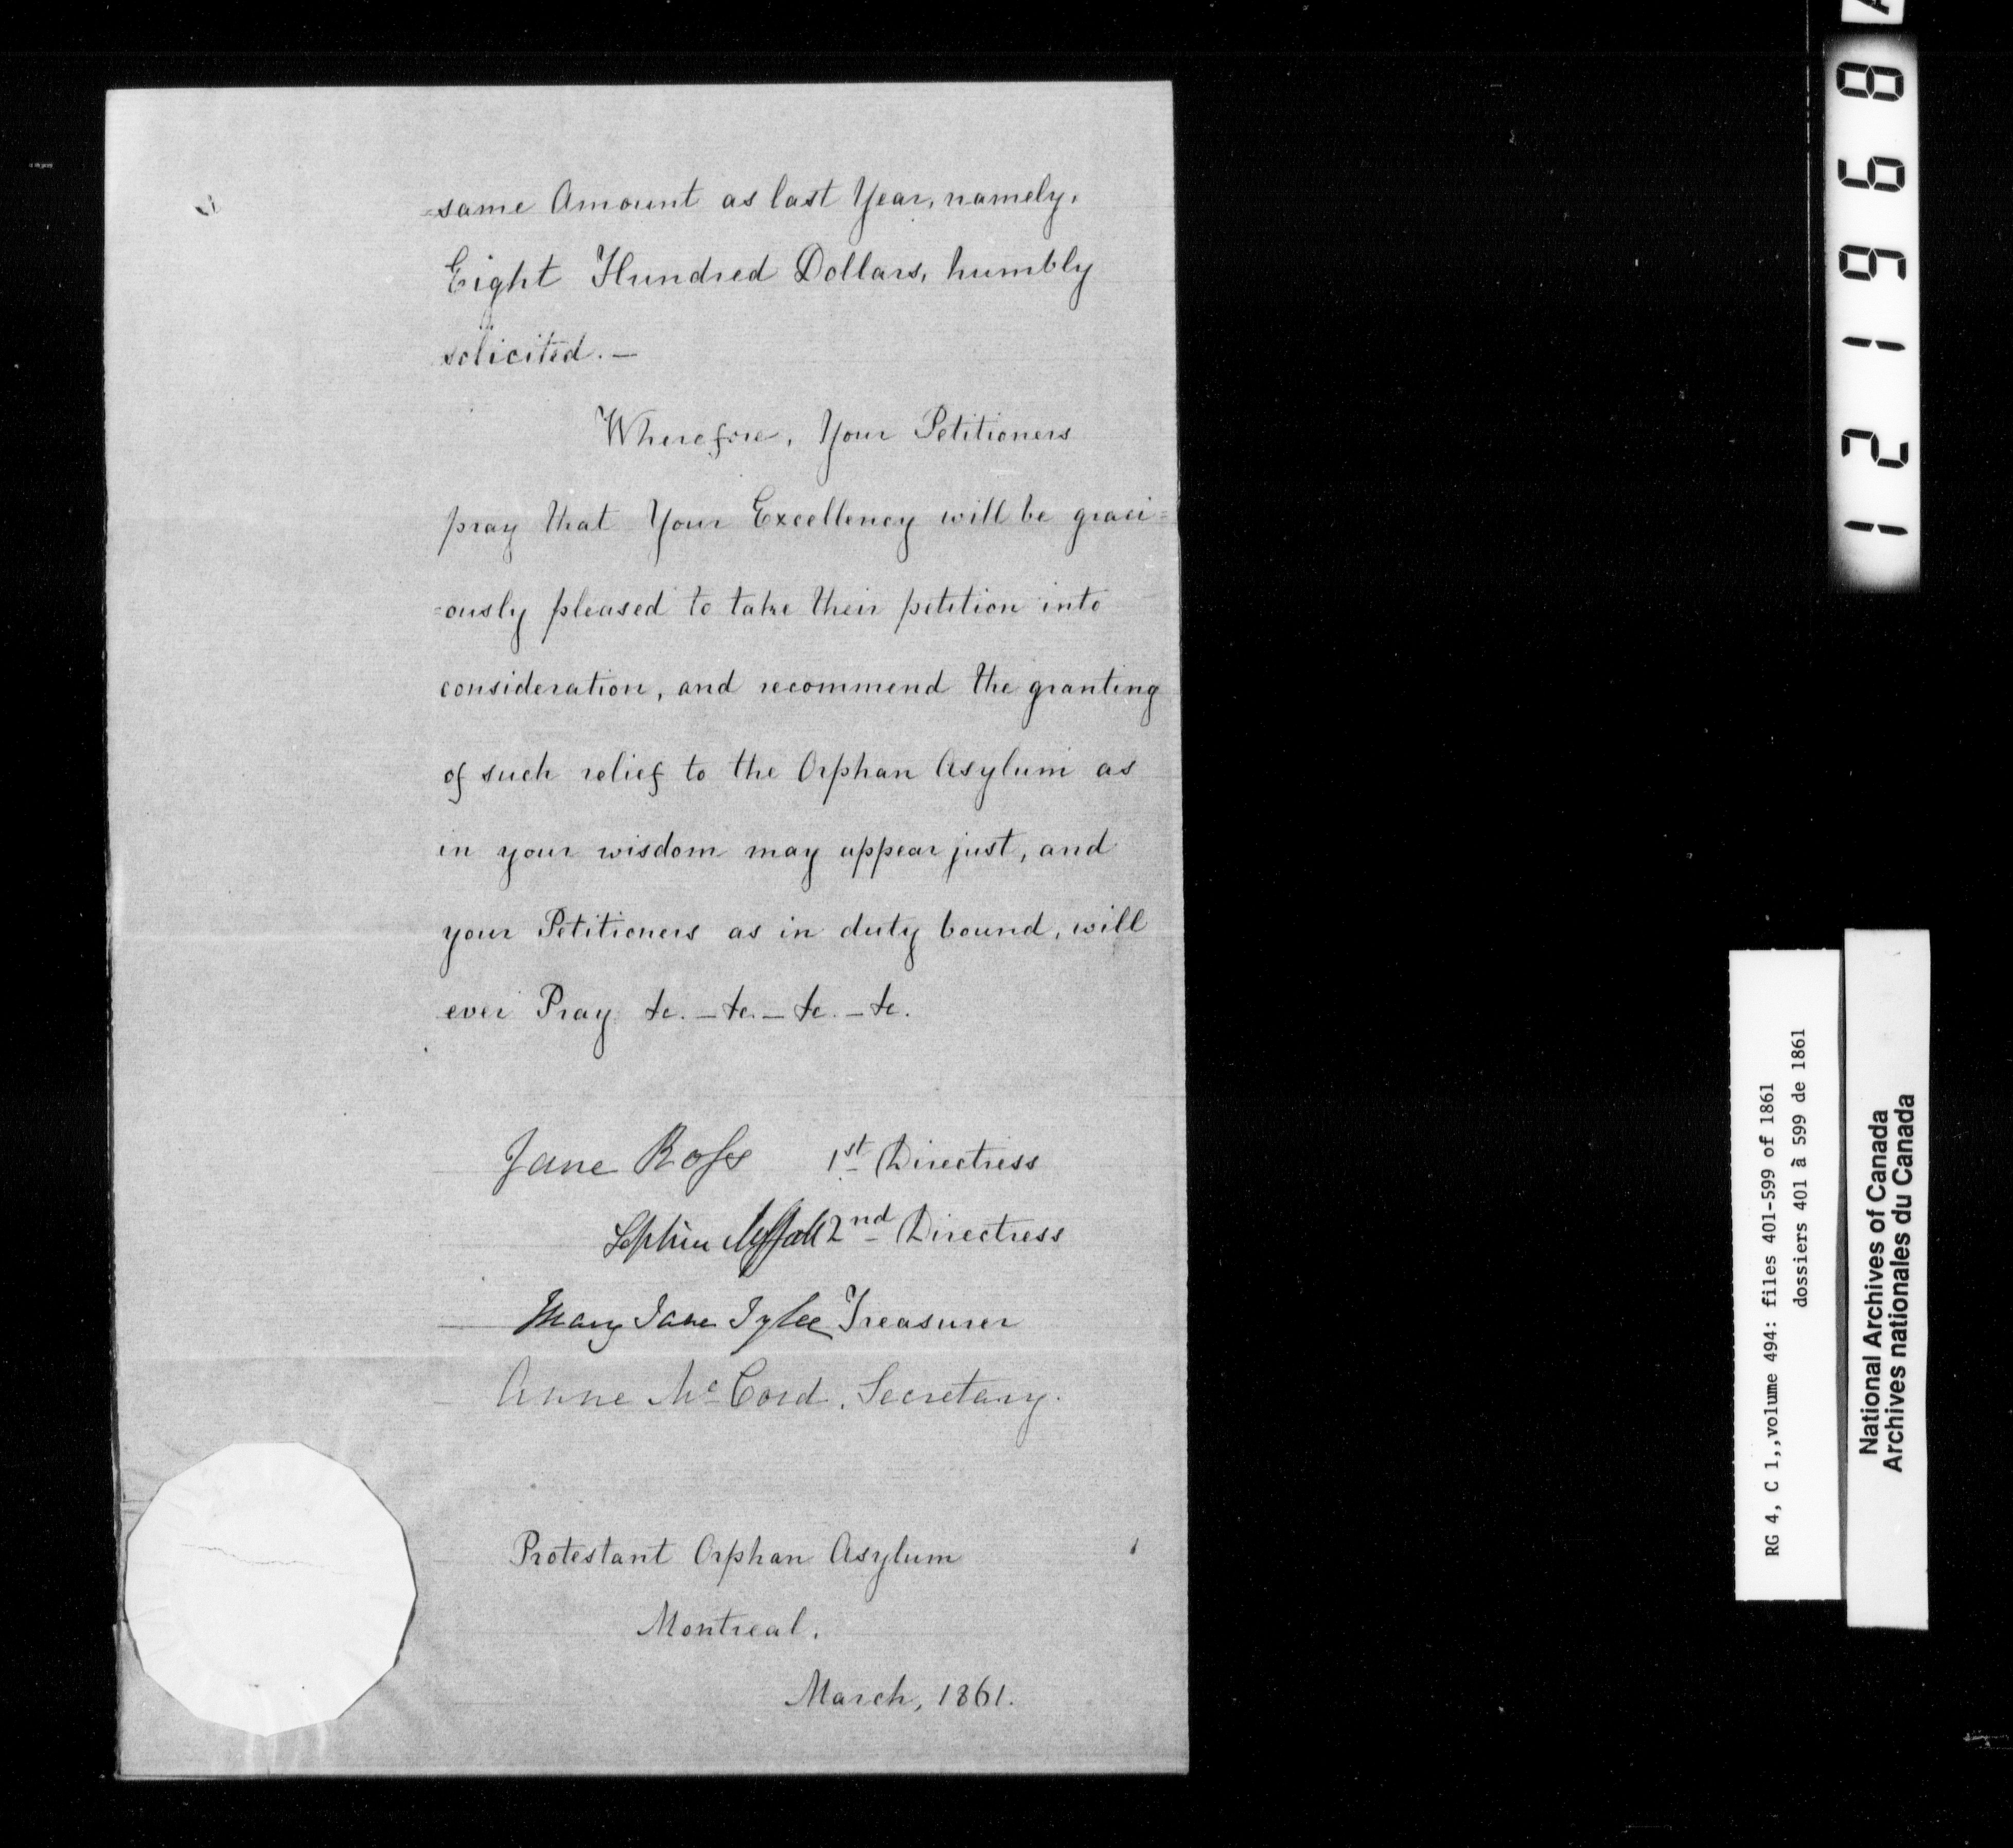 same Amount as last Year, namely,
Eight Hundred Dollars, humbly
solicited. —
Wherefore, Your Petitioners
pray that Your Excellency will be graci=
=ously pleased to take their petition into
consideration, and recommend the granting
of such relief to the Orphan Asylum as
in your wisdom may appear just, and
your Petitioners as in duty bound, will
ever Pray &c. — &c. — &c. — &c.
Jane Ross 1st Directress
2nd Directress
Mary Jane Tylee Treasurer
Anne McCord, Secretary.
Protestant Orphan Asylum
Montreal.
March, 1861.
121968
RG 4, C 1,,volume 494: files 401-599 of 1861
dossiers 401 à 599 de 1861
National Archives of Canada
Archives nationales du Canada